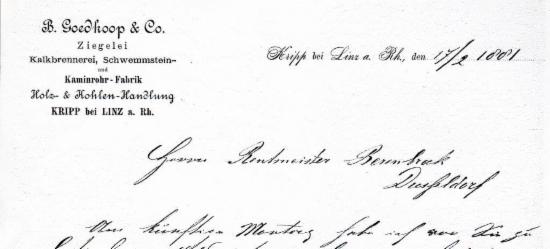 B. Goedhoop & Co.
Ziegelei
Kalkbrennerei, Schwemmstein-
und
Kaminrohr-Fabrik
Holz- & Kohlen-Handlung
KRIPP bei LINZ a. Rh.
Kripp bei Linz a. Rh., den 17/2 1881
Herrn Rentmeister Berenbrock
Düsseldorf
Am künftigen Montag habe ich vor Sie zu